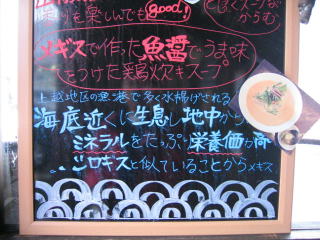 香りを楽しんでも
good!
とばくスープな
からむ
メギスで作った魚醤でうま味
をつけた鶏炊キスープ
上越地区の漁港で多く水揚げされる
海底近くに生息し地中から
ミネラルをたっぷり栄養価が高
シロギスと似ていることからメギス